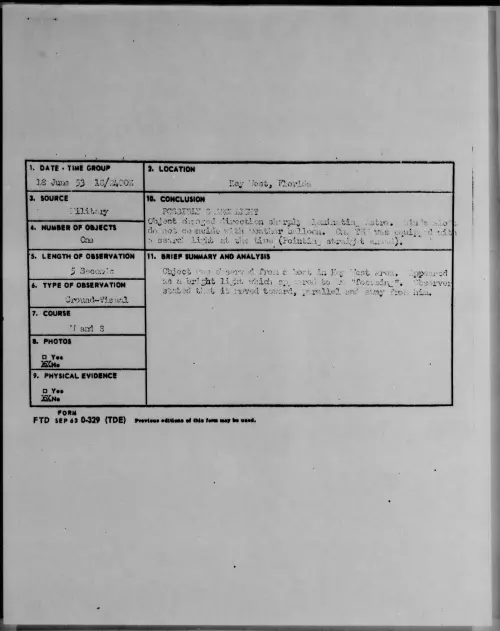 1. DATE - TIME GROUP
18 June 53
2. LOCATION
Key West, Florida
3. SOURCE
Military
10. CONCLUSION
Object changed direction sharply eliminating astro.
do not coincide with weather balloon. One was equipped with
a search light at the time (Pointing straight
4. NUMBER OF OBJECTS
One
5. LENGTH OF OBSERVATION
5 Seconds
11. BRIEF SUMMARY AND ANALYSIS
Object was observed from a boat in Key West area. Appeared
as a bright light which appeared to be "focusing". Observer
stated that it moved toward, parallel and away from him.
6. TYPE OF OBSERVATION
Ground-Visual
7. COURSE
and S
8. PHOTOS
☐ Yes
XX No
9. PHYSICAL EVIDENCE
☐ Yes
XX No
FORM
FTD SEP 63 0-329 (TDE) Previous editions of this form may be used.